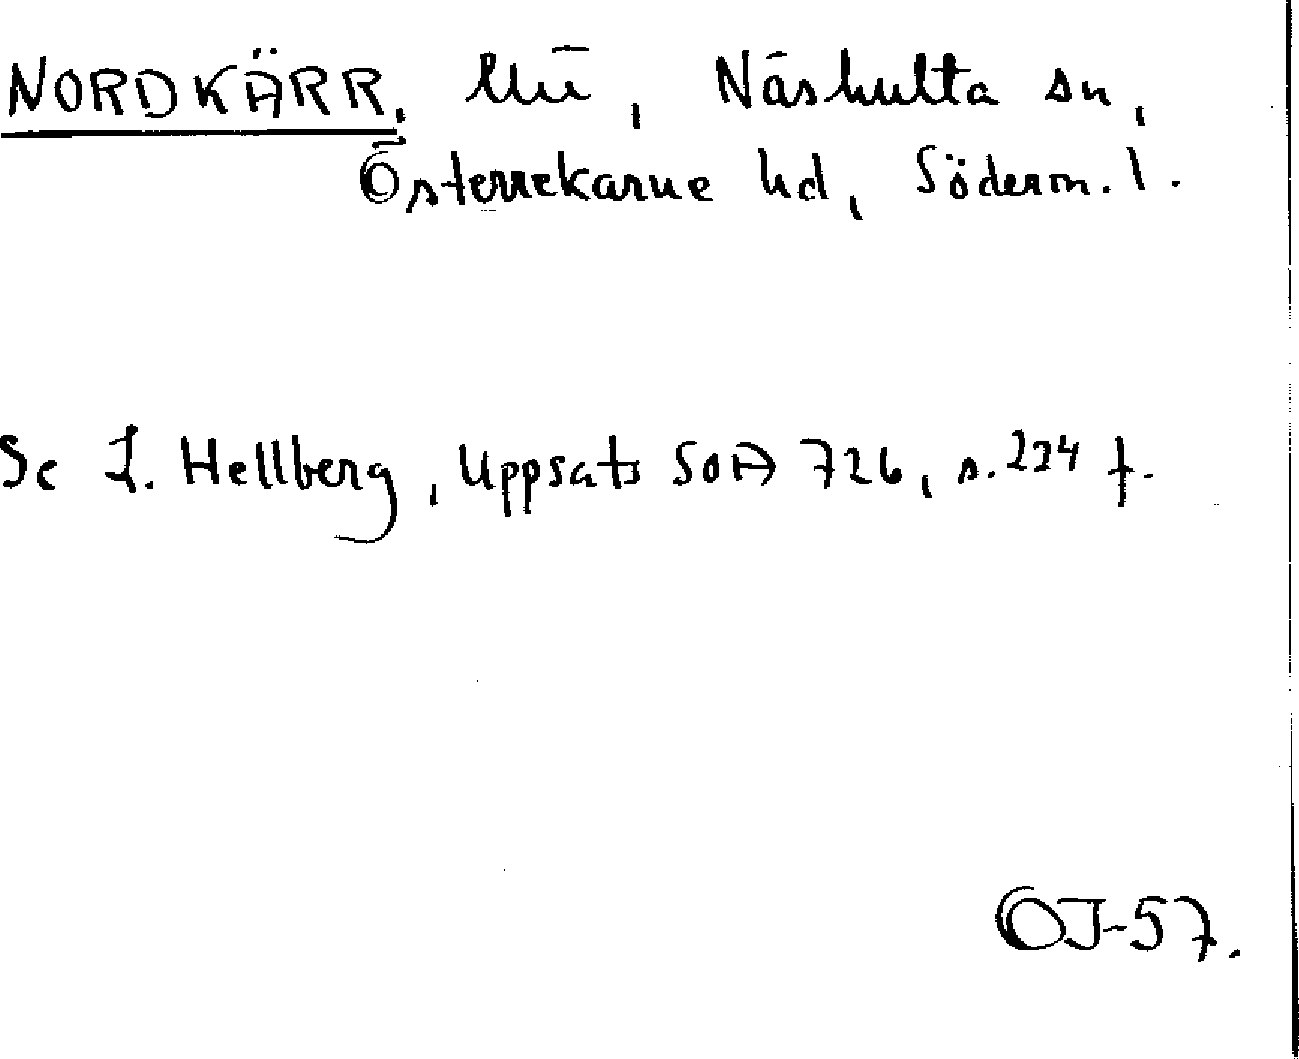 NORDKÄRR, Näshulta sn,
Österrekarne hd, Söderm. l.
Se L. Hellberg, Uppsats SOA 726, s. 224 f.
OJ-57.